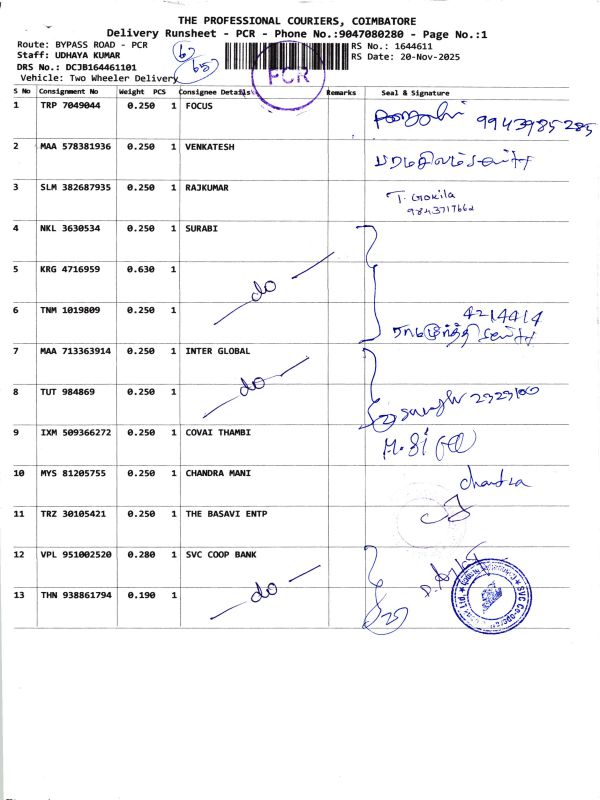 THE PROFESSIONAL COURIERS, COIMBATORE
Delivery Runsheet - PCR - Phone No.:9047080280 - Page No.:1
Route: BYPASS ROAD - PCR
RS No.: 1644611
Staff: UDHAYA KUMAR
RS Date: 20-Nov-2025
DRS No.: DCJB164461101
Vehicle: Two Wheeler Delivery
PCR
S No Consignment No Weight PCS Consignee Details Remarks Seal & Signature
1 TRP 7049044 0.250 1 FOCUS
9943985285
2 MAA 578381936 0.250 1 VENKATESH
3 SLM 382687935 0.250 1 RAJKUMAR
T. Gokila
4 NKL 3630534 0.250 1 SURABI
5 KRG 4716959 0.630 1
do
6 TNM 1019809 0.250 1
4214414
7 MAA 713363914 0.250 1 INTER GLOBAL
do
8 TUT 984869 0.250 1
9 IXM 509366272 0.250 1 COVAI THAMBI
10 MYS 81205755 0.250 1 CHANDRA MANI
Chandra
11 TRZ 30105421 0.250 1 THE BASAVI ENTP
12 VPL 951002520 0.280 1 SVC COOP BANK
13 THN 938861794 0.190 1
do